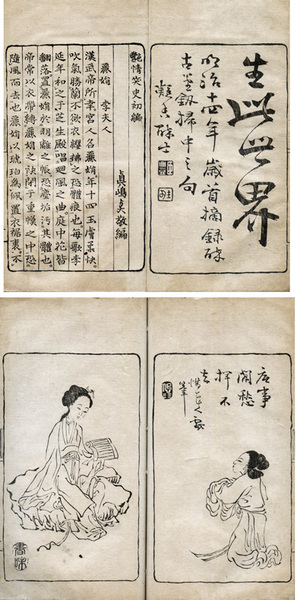 生此世界
明治十四年歳首摘録醉
古堂劍掃中之句
艷情笑史初編
麗娟 李夫人
漢武帝所幸宮人名麗娟年十四玉膚柔軟
吹氣勝蘭不欲衣纓拂之恐體痕也每歌李
延年和之于芝生殿唱廻風之曲庭中花皆
翻落置麗娟於明離之帳恐塵垢污其體也
帝常以衣帶縛麗娟之袂閉於重幙之中恐
隨風而去也麗娟以琥珀為佩置衣裾裏不
底事
閒愁
揮不
去